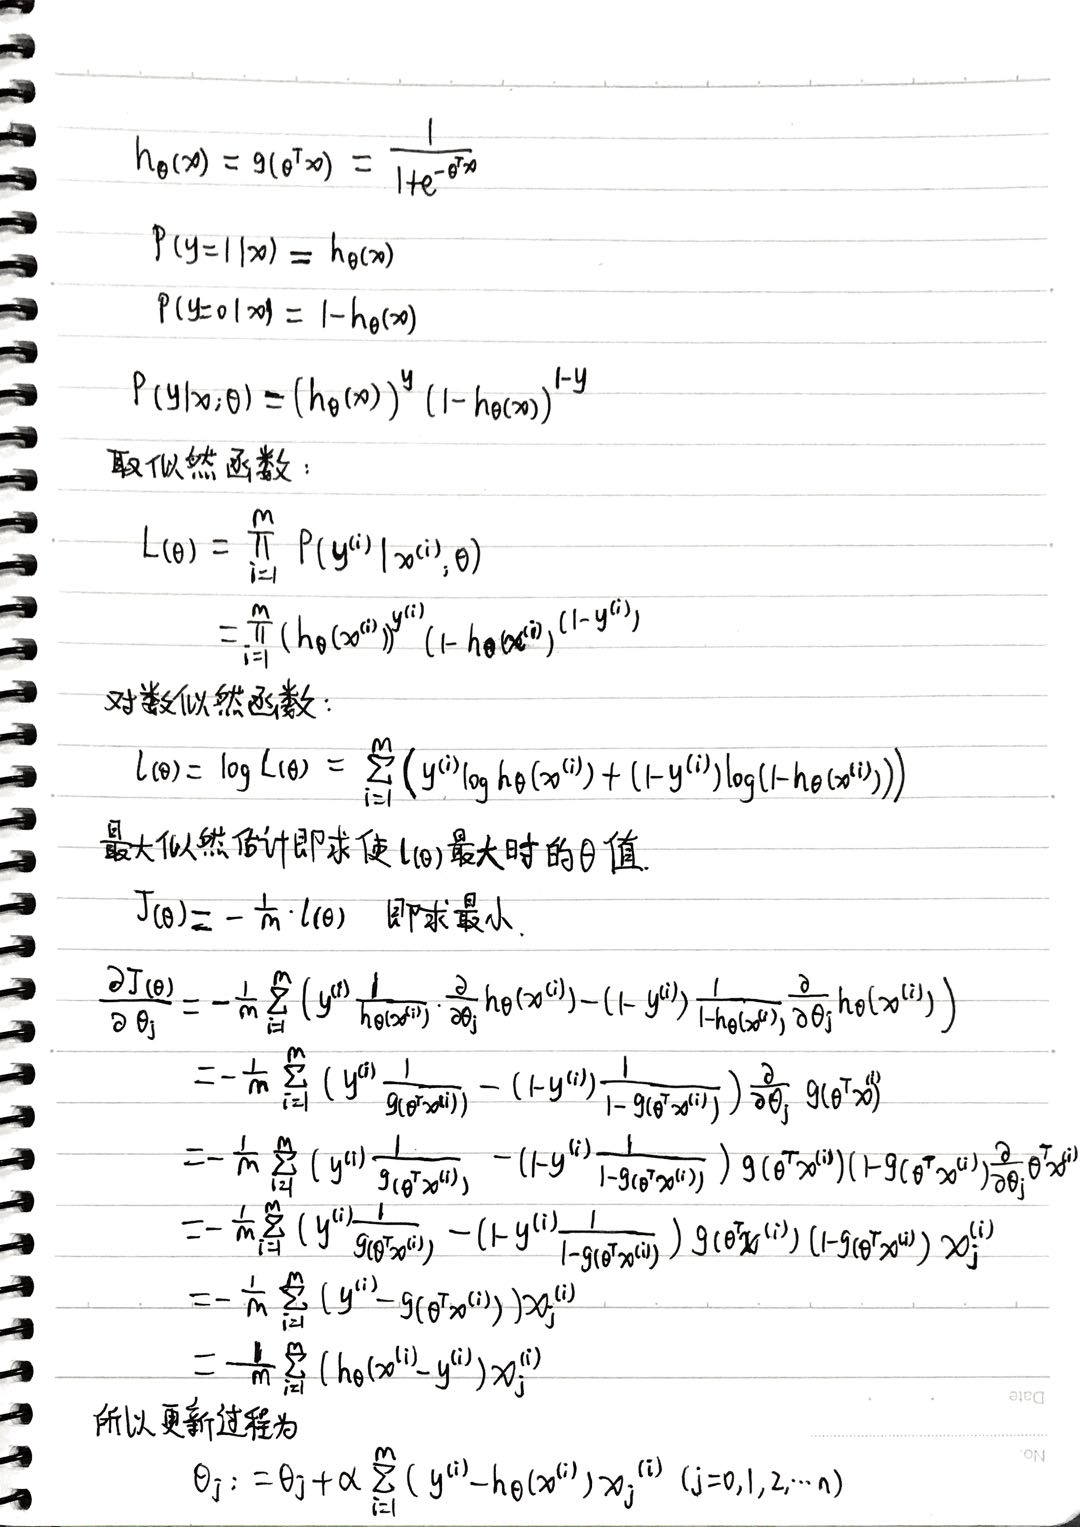 hθ(x) = g(θᵀx) = 1/(1+e^(-θᵀx))
P(y=1|x) = hθ(x)
P(y=0|x) = 1-hθ(x)
P(y|x;θ) = (hθ(x))^y (1-hθ(x))^(1-y)
取似然函数:
L(θ) = ∏_{i=1}^{m} P(y⁽ⁱ⁾|x⁽ⁱ⁾;θ)
= ∏_{i=1}^{m} (hθ(x⁽ⁱ⁾))^(y⁽ⁱ⁾) (1-hθ(x⁽ⁱ⁾)^(1-y⁽ⁱ⁾)
对数似然函数:
l(θ) = log L(θ) = ∑_{i=1}^{m} (y⁽ⁱ⁾ log hθ(x⁽ⁱ⁾) + (1-y⁽ⁱ⁾) log(1-hθ(x⁽ⁱ⁾)))
最大似然估计即求使l(θ)最大时的θ值.
J(θ) = -1/m · l(θ) 即求最小.
∂J(θ)/∂θj = -1/m ∑_{i=1}^{m} (y⁽ⁱ⁾ 1/hθ(x⁽ⁱ⁾) · ∂/∂θj hθ(x⁽ⁱ⁾) - (1-y⁽ⁱ⁾) 1/(1-hθ(x⁽ⁱ⁾)) ∂/∂θj hθ(x⁽ⁱ⁾))
= -1/m ∑_{i=1}^{m} (y⁽ⁱ⁾ 1/g(θᵀx⁽ⁱ⁾) - (1-y⁽ⁱ⁾) 1/(1-g(θᵀx⁽ⁱ⁾))) ∂/∂θj g(θᵀx⁽ⁱ⁾)
= -1/m ∑_{i=1}^{m} (y⁽ⁱ⁾ 1/g(θᵀx⁽ⁱ⁾) - (1-y⁽ⁱ⁾ 1/(1-g(θᵀx⁽ⁱ⁾))) g(θᵀx⁽ⁱ⁾)(1-g(θᵀx⁽ⁱ⁾) ∂/∂θj θᵀx⁽ⁱ⁾
= -1/m ∑_{i=1}^{m} (y⁽ⁱ⁾ 1/g(θᵀx⁽ⁱ⁾) - (1-y⁽ⁱ⁾ 1/(1-g(θᵀx⁽ⁱ⁾))) g(θᵀx⁽ⁱ⁾)(1-g(θᵀx⁽ⁱ⁾) xj⁽ⁱ⁾
= -1/m ∑_{i=1}^{m} (y⁽ⁱ⁾ - g(θᵀx⁽ⁱ⁾))xj⁽ⁱ⁾
= 1/m ∑_{i=1}^{m} (hθ(x⁽ⁱ⁾ - y⁽ⁱ⁾)xj⁽ⁱ⁾
Date
所以更新过程为
No.
θj := θj + α ∑_{i=1}^{m} (y⁽ⁱ⁾ - hθ(x⁽ⁱ⁾) xj⁽ⁱ⁾ (j=0,1,2,…n)